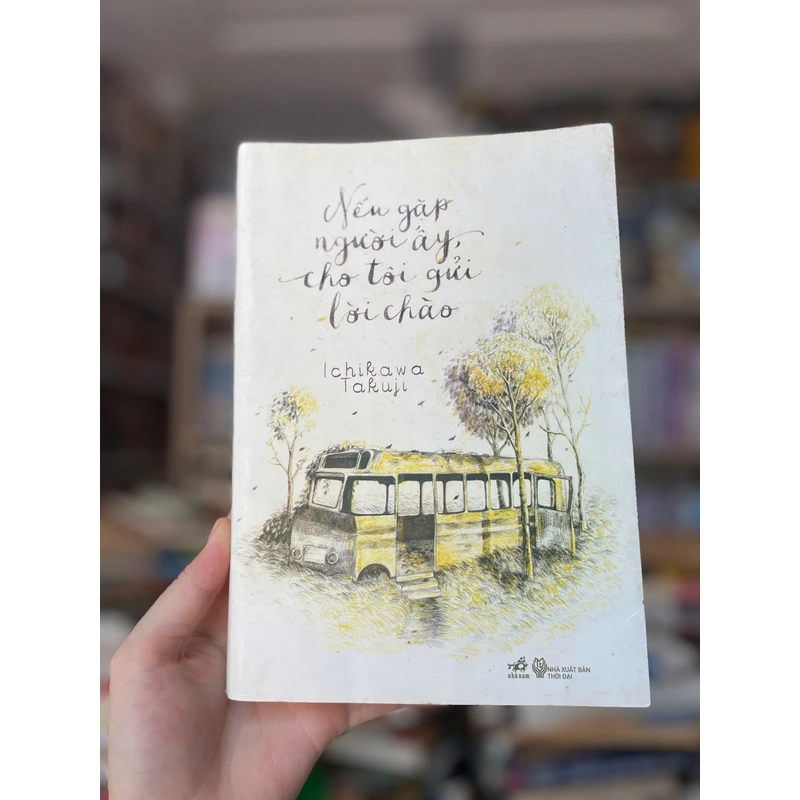 Nếu gặp
người ấy,
cho tôi gửi
lời chào
Ichikawa
Takuji
nhã nam
NHÀ XUẤT BẢN
THỜI ĐẠI